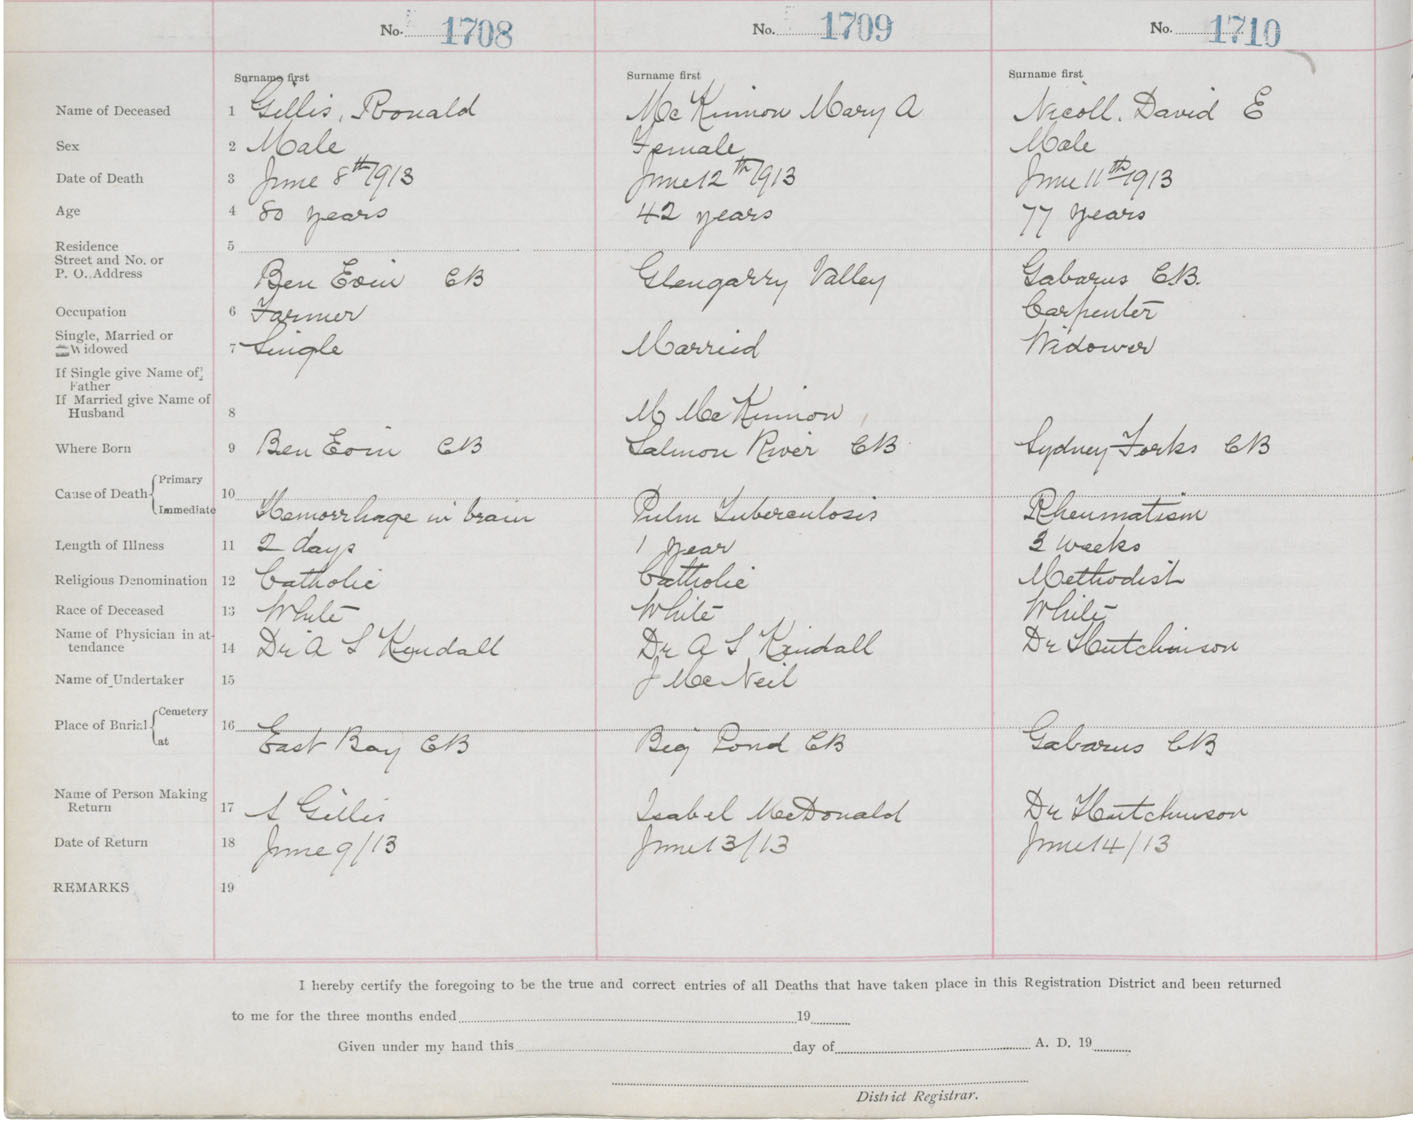 No. 1708 No. 1709 No. 1710
Surname first Surname first Surname first
Name of Deceased 1 Gillis, Ronald McKinnon Mary A Nicoll, David E
Sex 2 Male Female Male
Date of Death 3 June 8th 1913 June 12th 1913 June 11th 1913
Age 4 80 years 42 years 77 years
Residence 5
Street and No. or
P. O. Address Ben Eoin CB Glengarry Valley Gabarus C.B.
Occupation 6 Farmer Carpenter
Single, Married or
Widowed 7 Single Married Widower
If Single give Name of
Father
If Married give Name of
Husband 8 M McKinnon
Where Born 9 Ben Eoin CB Salmon River CB Sydney Forks CB
Cause of Death Primary 10
Immediate Hemorrhage in brain Pulm Tuberculosis Rheumatism
Length of Illness 11 2 days 1 year 3 weeks
Religious Denomination 12 Catholic Catholic Methodist
Race of Deceased 13 White White White
Name of Physician in at-
tendance 14 Dr A S Kendall Dr A S Kendall Dr Hutchinson
Name of Undertaker 15 J McNeil
Place of Burial Cemetery 16
at East Bay CB Big Pond CB Gabarus CB
Name of Person Making
Return 17 S Gillis Isabel McDonald Dr Hutchinson
Date of Return 18 June 9/13 June 13/13 June 14/13
REMARKS 19
I hereby certify the foregoing to be the true and correct entries of all Deaths that have taken place in this Registration District and been returned
to me for the three months ended 19
Given under my hand this day of A. D. 19
District Registrar.